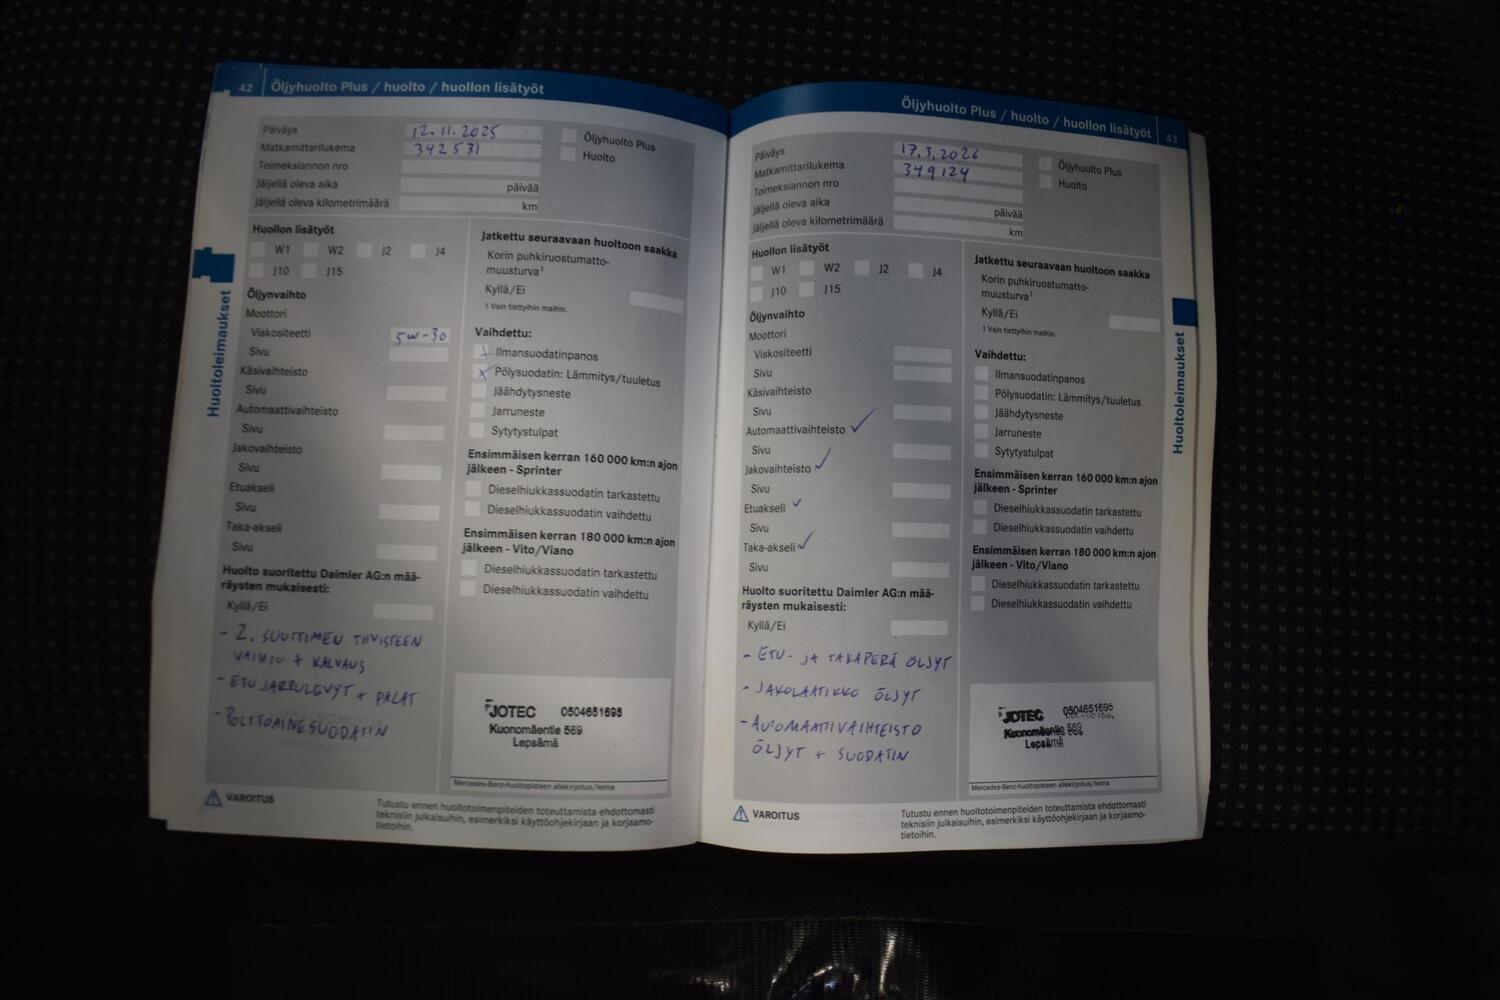 42 Öljyhuolto Plus / huolto / huollon lisätyöt
Päiväys 12.11.2025
Matkamittarilukema 342531
Toimeksiannon nro
Jäljellä oleva aika päivää
Jäljellä oleva kilometrimäärä km
Öljyhuolto Plus
Huolto
Huollon lisätyöt
W1 W2 J2 J4
J10 J15
Öljynvaihto
Moottori
Viskositeetti 5W-30
Sivu
Käsivaihteisto
Sivu
Automaattivaihteisto
Sivu
Jakovaihteisto
Sivu
Etuakseli
Sivu
Taka-akseli
Sivu
Huolto suoritettu Daimler AG:n mää-
räysten mukaisesti:
Kyllä/Ei
- 2. SUUTTIMEN TIIVISTEEN
VAIHTO + KALVAUS
- ETUJARRULEVYT + PALAT
- POLTTOAINESUODATIN
Jatkettu seuraavaan huoltoon saakka
Korin puhkiruostumatto-
muusturva¹
Kyllä/Ei
1 Vain tiettyihin maihin.
Vaihdettu:
x Ilmansuodatinpanos
x Pölysuodatin: Lämmitys/tuuletus
Jäähdytysneste
Jarruneste
Sytytystulpat
Ensimmäisen kerran 160 000 km:n ajon
jälkeen - Sprinter
Dieselhiukkassuodatin tarkastettu
Dieselhiukkassuodatin vaihdettu
Ensimmäisen kerran 180 000 km:n ajon
jälkeen - Vito/Viano
Dieselhiukkassuodatin tarkastettu
Dieselhiukkassuodatin vaihdettu
JOTEC 0504651695
Kuonomäentie 569
Lepsämä
Mercedes-Benz-huoltopisteen allekirjoitus/leima
VAROITUS
Tutustu ennen huoltotoimenpiteiden toteuttamista ehdottomasti
teknisiin julkaisuihin, esimerkiksi käyttöohjekirjaan ja korjaamo-
tietoihin.
Huoltoleimaukset
Öljyhuolto Plus / huolto / huollon lisätyöt 43
Päiväys 17.3.2026
Matkamittarilukema 349124
Toimeksiannon nro
Jäljellä oleva aika päivää
Jäljellä oleva kilometrimäärä km
Öljyhuolto Plus
Huolto
Huollon lisätyöt
W1 W2 J2 J4
J10 J15
Öljynvaihto
Moottori
Viskositeetti
Sivu
Käsivaihteisto
Sivu
Automaattivaihteisto ✓
Sivu
Jakovaihteisto ✓
Sivu
Etuakseli ✓
Sivu
Taka-akseli ✓
Sivu
Huolto suoritettu Daimler AG:n mää-
räysten mukaisesti:
Kyllä/Ei
- ETU- JA TAKAPERÄ ÖLJYT
- JAKOLAATIKKO ÖLJYT
- AUTOMAATTIVAIHTEISTO
ÖLJYT + SUODATIN
Jatkettu seuraavaan huoltoon saakka
Korin puhkiruostumatto-
muusturva¹
Kyllä/Ei
1 Vain tiettyihin maihin.
Vaihdettu:
Ilmansuodatinpanos
Pölysuodatin: Lämmitys/tuuletus
Jäähdytysneste
Jarruneste
Sytytystulpat
Ensimmäisen kerran 160 000 km:n ajon
jälkeen - Sprinter
Dieselhiukkassuodatin tarkastettu
Dieselhiukkassuodatin vaihdettu
Ensimmäisen kerran 180 000 km:n ajon
jälkeen - Vito/Viano
Dieselhiukkassuodatin tarkastettu
Dieselhiukkassuodatin vaihdettu
JOTEC 0504651695
Kuonomäentie 569
Lepsämä
Mercedes-Benz-huoltopisteen allekirjoitus/leima
VAROITUS
Tutustu ennen huoltotoimenpiteiden toteuttamista ehdottomasti
teknisiin julkaisuihin, esimerkiksi käyttöohjekirjaan ja korjaamo-
tietoihin.
Huoltoleimaukset